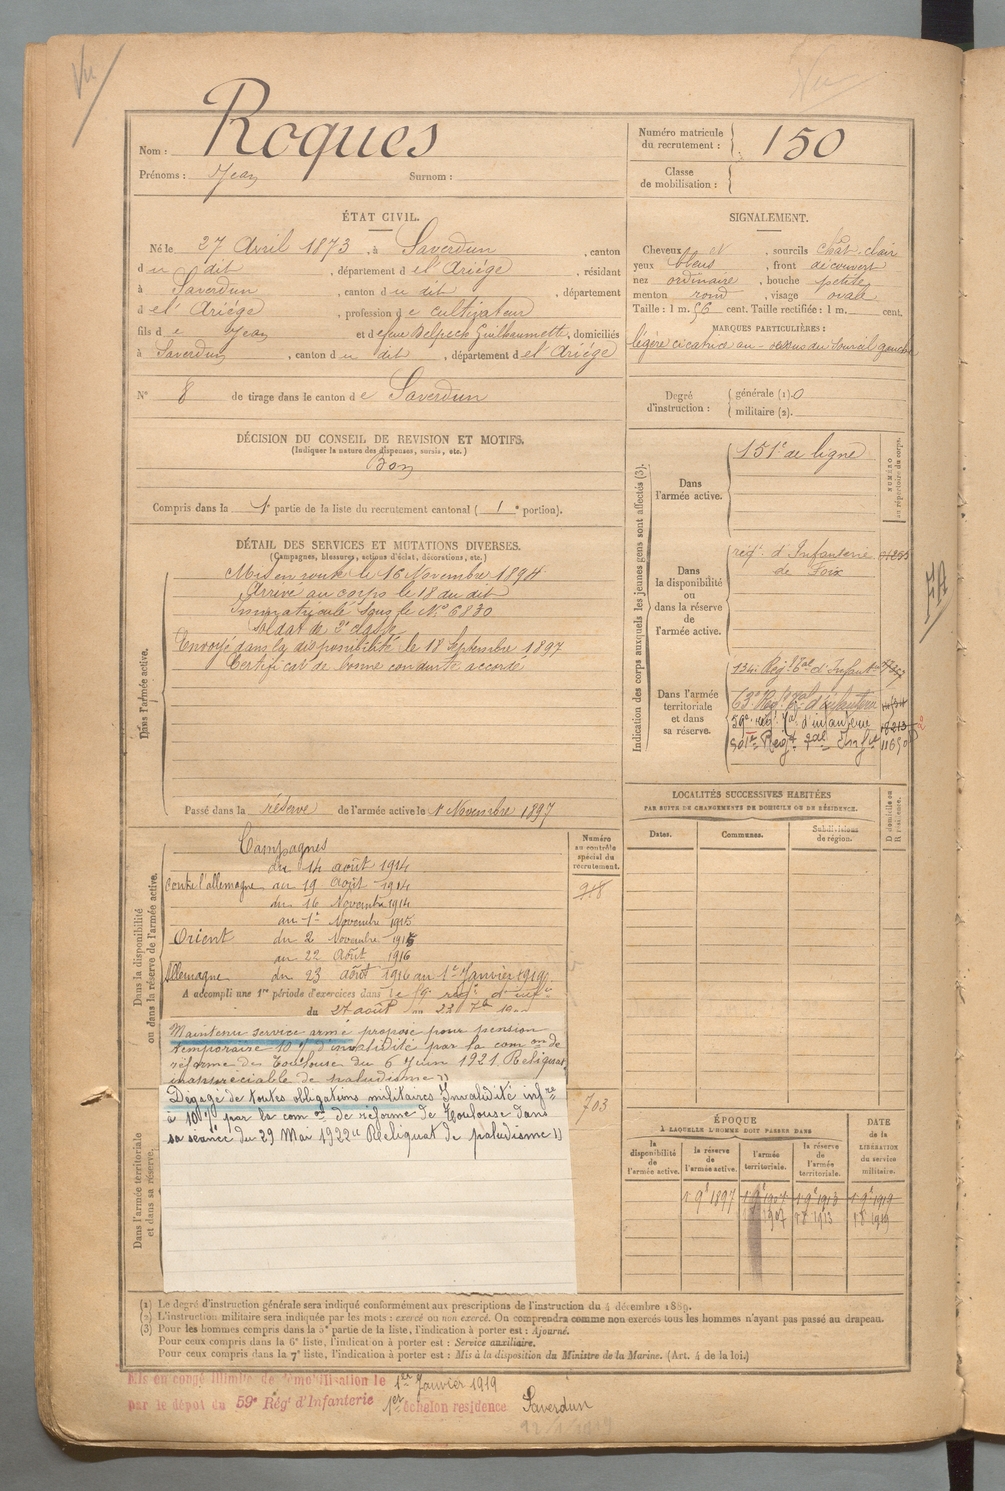 Vu
Nom : Roques
Prénoms : Jean Surnom :
Numéro matricule du recrutement : 150
Classe de mobilisation :
ÉTAT CIVIL.
Né le 27 Avril 1873, à Saverdun, canton
du dit, département de l'Ariége, résidant
à Saverdun, canton du dit, département
de l'Ariége, profession de cultivateur
fils de Jean et de feue Delpech Guilhaumette, domiciliés
à Saverdun, canton du dit, département de l'Ariége
N° 8 de tirage dans le canton de Saverdun
SIGNALEMENT.
Cheveux et, sourcils chât. clair
yeux bleus, front découvert
nez ordinaire, bouche petite
menton rond, visage ovale
Taille : 1 m. 56 cent. Taille rectifiée : 1 m. cent.
MARQUES PARTICULIÈRES :
légère cicatrice au-dessus du sourcil gauche
Degré d'instruction : générale (1). 0
militaire (2).
DÉCISION DU CONSEIL DE REVISION ET MOTIFS.
(Indiquer la nature des dispenses, sursis, etc.)
Bon
Compris dans la 1e partie de la liste du recrutement cantonal ( 1e portion).
DÉTAIL DES SERVICES ET MUTATIONS DIVERSES.
(Campagnes, blessures, actions d'éclat, décorations, etc.)
Dans l'armée active.
Mis en route le 16 Novembre 1894
Arrivé au corps le 18 du dit
Immatriculé sous le N° 6830
Soldat de 2e classe
Envoyé dans la disponibilité le 18 Septembre 1897
Certificat de bonne conduite accordé
Passé dans la réserve de l'armée active le 1r Novembre 1897
Indication des corps auxquels les jeunes gens sont affectés (3).
NUMÉRO au répertoire du corps.
Dans l'armée active.
151e de ligne
Dans la disponibilité ou dans la réserve de l'armée active.
régt. d'Infanterie
de Foix
Dans l'armée territoriale et dans sa réserve.
134e Régt Tal d'Infantie
63e Régt d'infanterie
59e régt Tal d'infanterie 18213
LOCALITÉS SUCCESSIVES HABITÉES
PAR SUITE DE CHANGEMENTS DE DOMICILE OU DE RÉSIDENCE.
Dates. Communes. Subdivisions de région. D domicile ou R résidence.
Dans la disponibilité ou dans la réserve de l'armée active.
Numéro au contrôle spécial du recrutement.
918
Campagnes
du 14 août 1914
Contre l'allemagne au 19 Août 1914
du 16 Novembre 1914
au 1r Novembre 1915
Orient du 2 Novembre 1915
au 22 Août 1916
Allemagne du 23 août 1916 au 1r Janvier 1919
A accompli une 1re période d'exercices dans le 59e régt d'inf
du 27 août au 23 7bre
Maintenu service armé proposé pour pension
temporaire 10% d'invalidité par la comon de
réforme de Toulouse du 6 Juin 1921 Reliquat
inappréciable de paludisme »
Dans l'armée territoriale et dans sa réserve.
Dégagé de toutes obligations militaires Invalidité infre
à 10% par la comon de réforme de Toulouse dans
sa séance du 29 Mai 1922 « Reliquat de paludisme »
703
ÉPOQUE
À LAQUELLE L'HOMME DOIT PASSER DANS
la disponibilité de l'armée active. la réserve de l'armée active. l'armée territoriale. la réserve de l'armée territoriale. DATE de la LIBÉRATION du service militaire.
1 9e 1897 1 9e 1907 1 9e 1913 1 9e 1919
1907 1 8 1913 1 8 1919
(1) Le degré d'instruction générale sera indiqué conformément aux prescriptions de l'instruction du 4 décembre 1889.
(2) L'instruction militaire sera indiquée par les mots : exercé ou non exercé. On comprendra comme non exercés tous les hommes n'ayant pas passé au drapeau.
(3) Pour les hommes compris dans la 5e partie de la liste, l'indication à porter est : Ajourné.
Pour ceux compris dans la 6e liste, l'indication à porter est : Service auxiliaire.
Pour ceux compris dans la 7e liste, l'indication à porter est : Mis à la disposition du Ministre de la Marine. (Art. 4 de la loi.)
Mis en congé illimité de démobilisation le 1er Janvier 1919
par le dépôt du 59e Régt d'Infanterie 1er échelon residence Saverdun